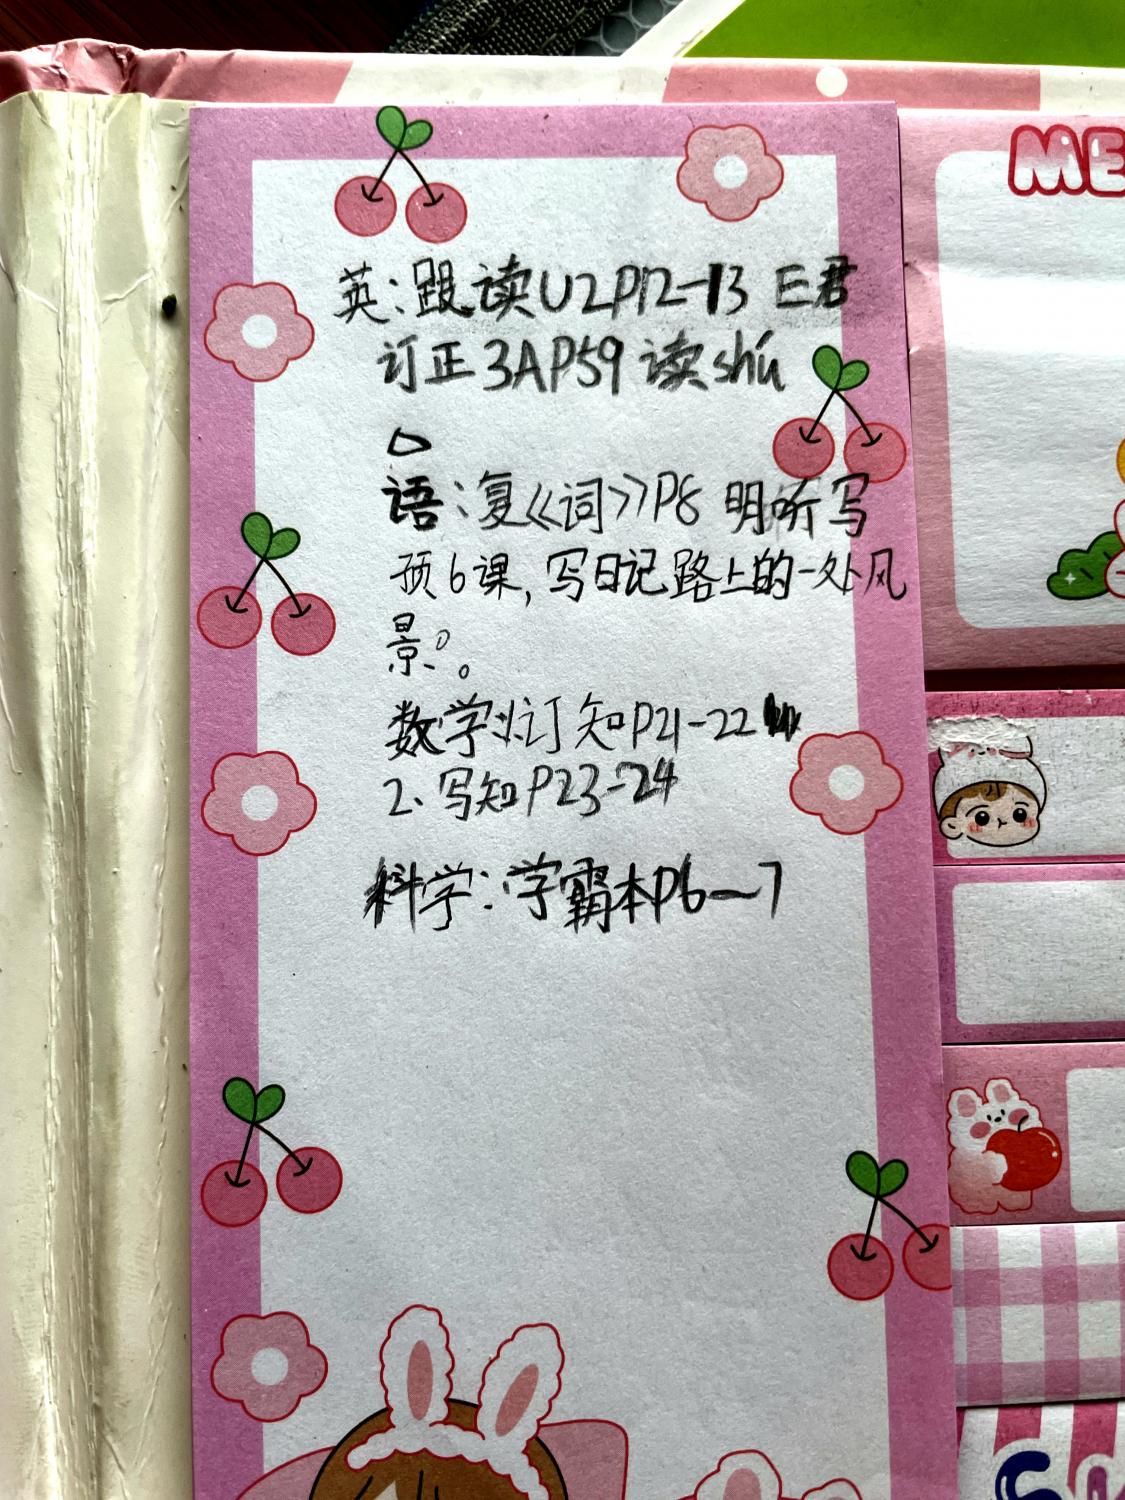 ME
英:跟读U2P12-13 E君
订正3AP59 读shú
语:复《词》P8 明听写
预6课,写日记路上的一处风
景。
数学:1.订知P21-22
2.写知P23-24
科学:学霸本P6-7